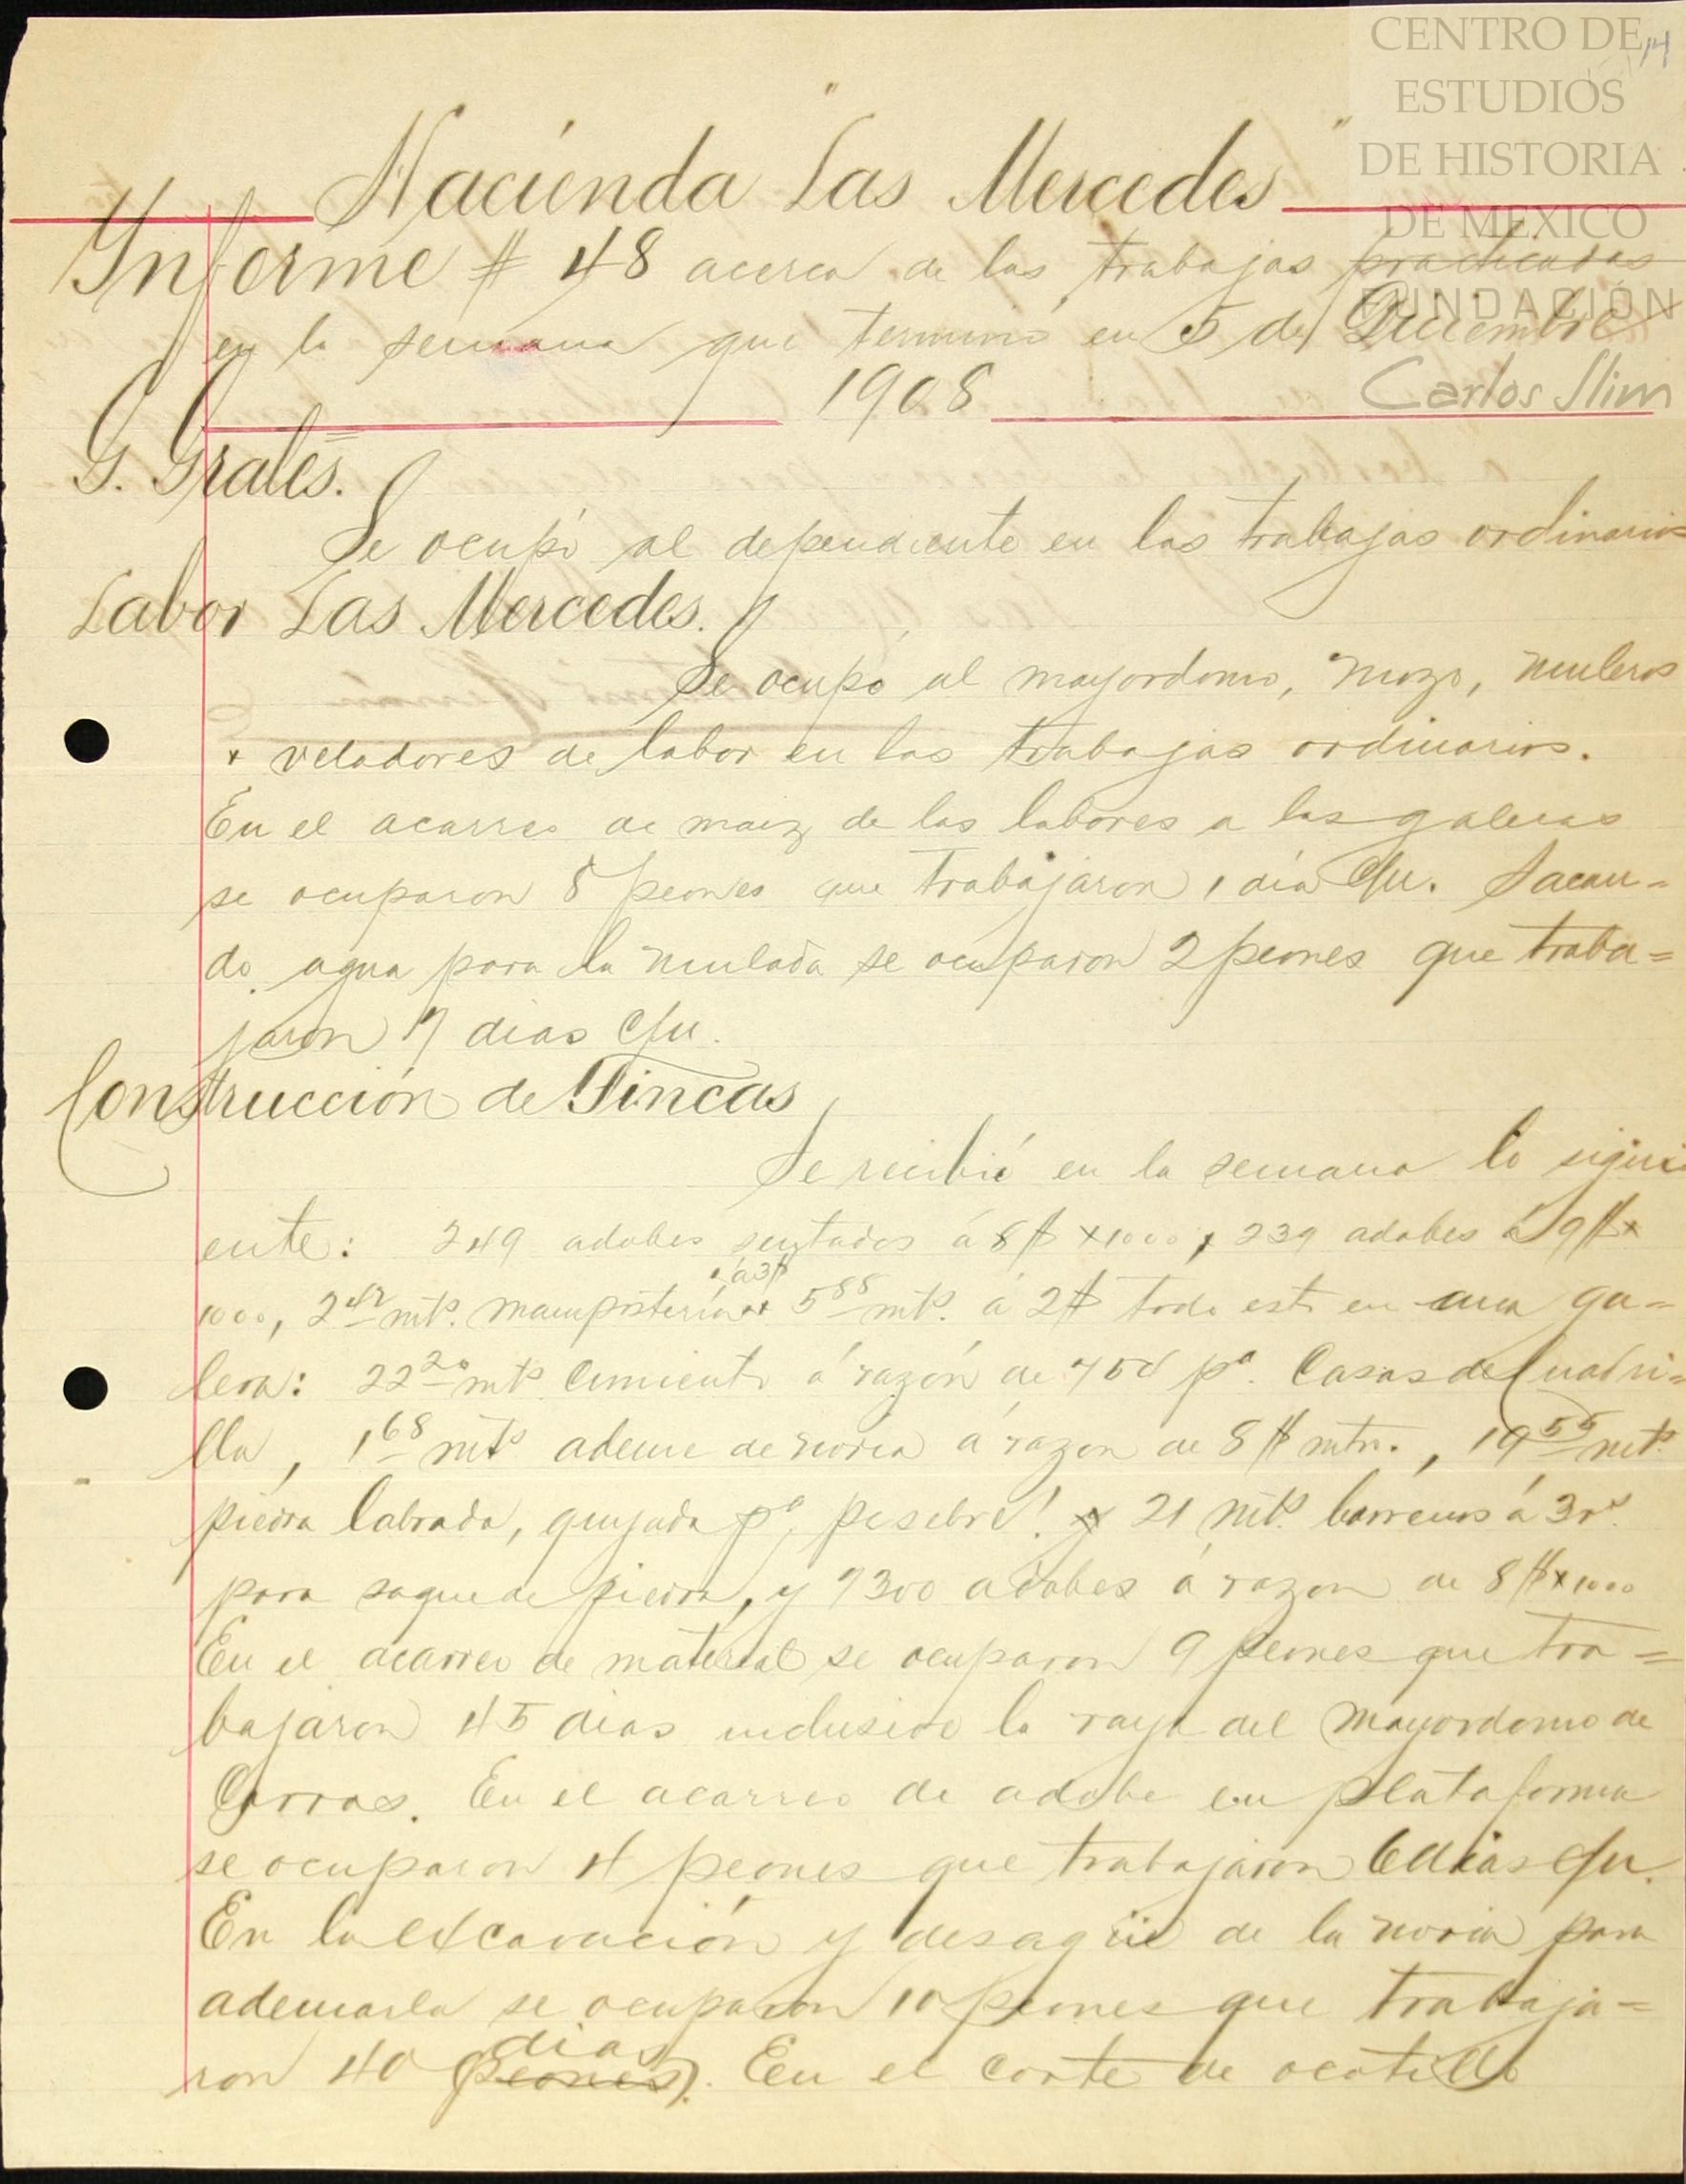 CENTRO DE
ESTUDIOS
DE HISTORIA
DE MEXICO
FUNDACIÓN
Carlos Slim
14
"Hacienda Las Mercedes"
Informe # 48 acerca de los trabajos practicados
en la semana que terminó en 5 de Diciembre
1908
G. Grales.
Se ocupó al dependiente en los trabajos ordinarios
Labor Las Mercedes.
Se ocupó al mayordomo, mozo, muleros
y veladores de labor en los trabajos ordinarios.
En el acarreo de maiz de las labores a las galeras
se ocuparon 8 peones que trabajaron 1 día c/u. Sacan=
do agua para la mulada se ocuparon 2 peones que traba=
jaron 7 dias c/u.
Construcción de Fincas
Se recibió en la semana lo sigui
ente: 249 adobes sentados á 8$ x 1000, y 239 adobes á 9$ x
1000, 2 42 mts. mamposteria á 3$ y 5 88 mts. á 2$ todo esto en una ga=
lera: 22 20 mts. cimiento á razón de pa. Casas de Cuadri=
lla, 1 68 mts ademe de noria á razon de 8$ mtr., 19 55 mts.
piedra labrada, pa. pesebre! y 21 mts. barrenos á 3rs.
para saque de piedra, y 7300 adobes á razon de 8$ x 1000
En el acarreo de material se ocuparon 9 peones que tra=
bajaron 45 dias inclusive la raya del mayordomo de
Carros. En el acarreo de adobe en plataforma
se ocuparon 4 peones que trabajaron 6 dias c/u.
En la excavación y desagüe de la noria para
ademarla se ocuparon 10 peones que trabaja=
ron 40 dias (peones). En el corte de ocotillo